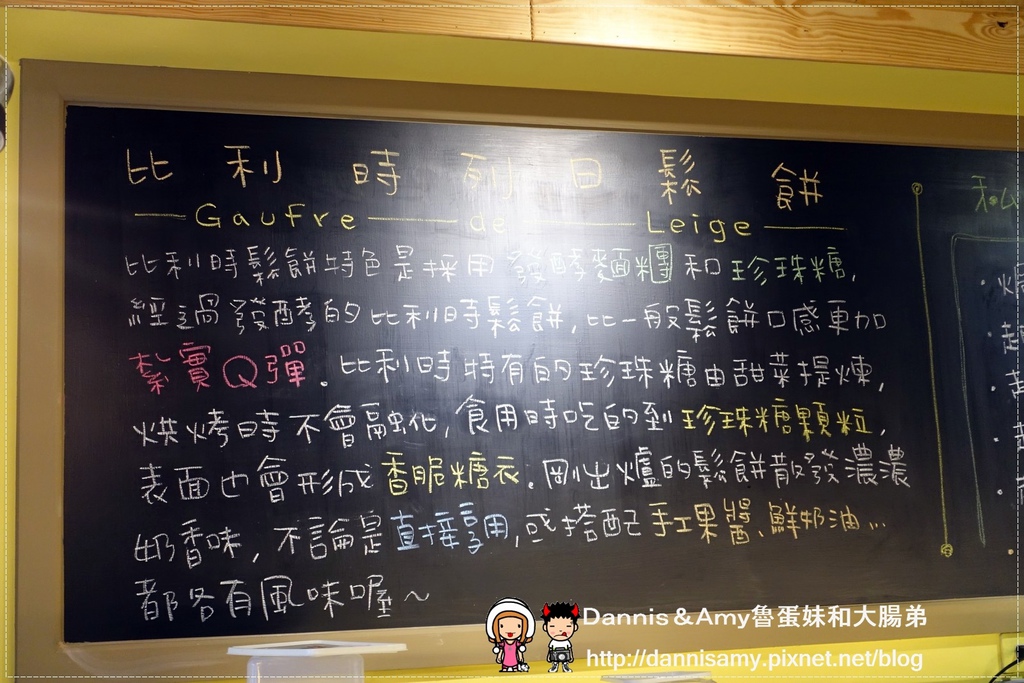 比利時列日鬆餅
Gaufre de Leige
比利時鬆餅特色是採用發酵麵糰和珍珠糖,
經過發酵的比利時鬆餅,比一般鬆餅口感更加
紮實Q彈.比利時特有的珍珠糖由甜菜提煉,
烘烤時不會融化,食用時吃的到珍珠糖顆粒,
表面也會形成香脆糖衣.剛出爐的鬆餅散發濃濃
奶香味,不論是直接享用,或搭配手工果醬、鮮奶油...
都各有風味喔~
Dannis & Amy魯蛋妹和大腸弟
http://dannisamy.pixnet.net/blog